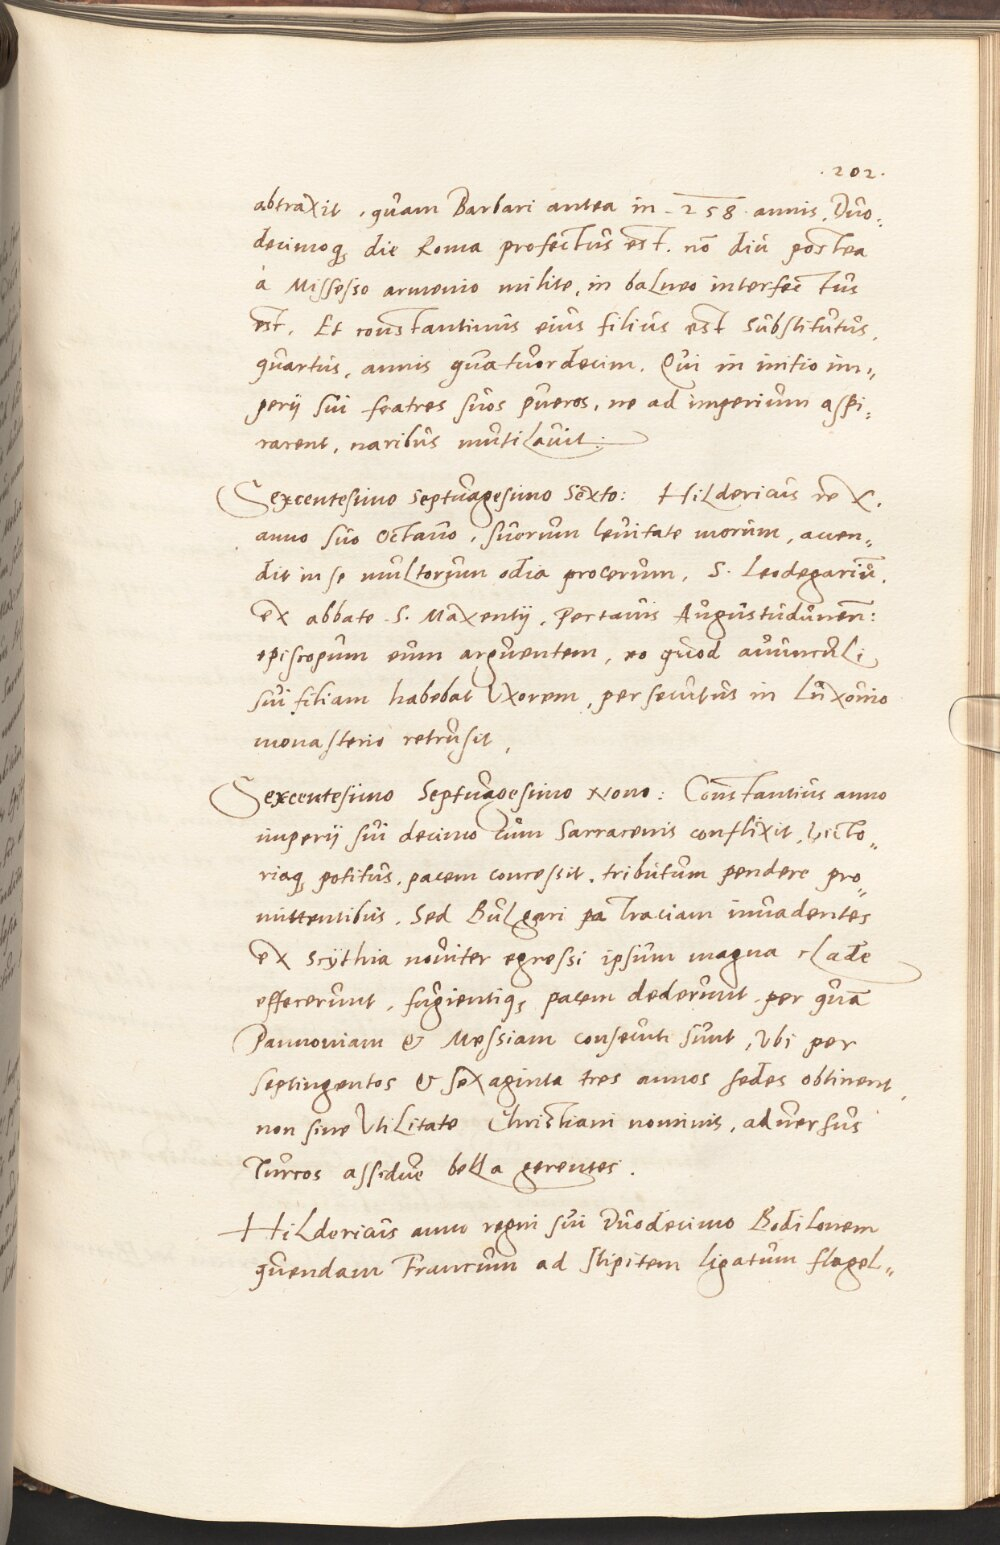 . 202 .
abtraxit, quam Barbari antea in .258. annis. Duo„
decimoq̨ die Roma profectus est. nō diu postea
à Missesso armenio milite, in balneo interfectus
est. Et constantinus eius filius est substitutus,
quartus, annis quatuordecim. Qui in initio im„
perij sui featres suos pueros, ne ad imperium aspi„
rarent, naribus mutilauit.
Sexcentesimo septuagesimo sexto: Hildericus rex,
anno suo octauo, suorum leuitate morum, accen„
dit in se multorum odia procerum. S. Leodegariū,
ex abbate S. Maxentij, Pertauis Augustudunen̄:
episcopum eum arguentem, eo quod auunculi
sui filiam habebat vxorem, persecutus in Luxouio
monasterio retrusit,
Sexcentesimo Septuagesimo Nono: Constantius anno
imperij sui decimo cum Sarracenis conflixit, victo„
riaq̨ potitus, pacem concessit, tributum pendere pro„
mittentibus. Sed Bulgari pa Traciam inuadentes
ex Scÿthia nouiter egressi ipsum magna clade
effecerunt, fugientiq̨ pacem dederunt per quā
Pannoniam & Messiam consecuti sunt, vbi per
septingentos & sexaginta tres annos sedes obtinent,
non sine vtilitate Christiani nominis, aduersus
Turcos assidue bella gerentes.
Hildericus anno regni sui Duodecimo Bodilonem
quendam Francum ad stipitem ligatum flagel„